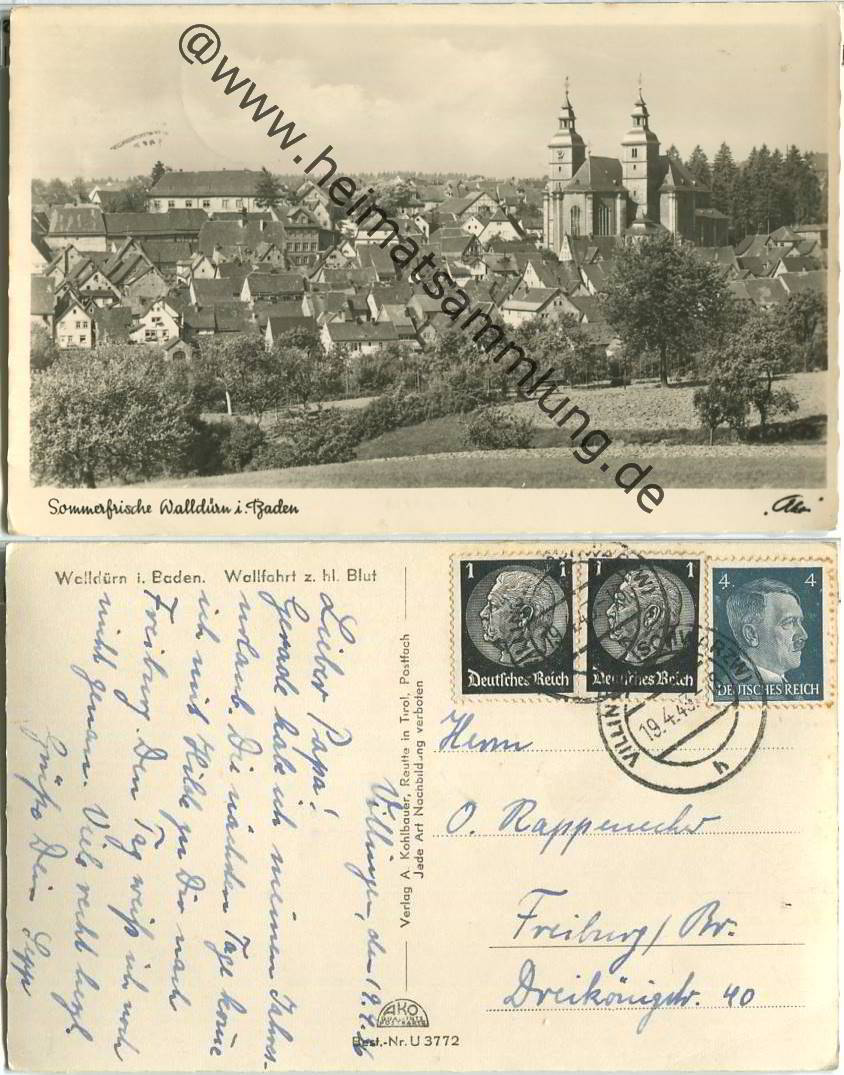 @www.heimatsammlung.de
Sommerfrische Walldürn i. Baden
Walldürn i. Baden. Wallfahrt z. hl. Blut
Villingen, den 19.4.
Lieber Papa!
Gerade habe ich meinen Jahres-
urlaub. Die nächsten Tage komme
ich mit Hilde zu Dir nach
Freiburg. Den Tag weiß ich noch
nicht genau. Viele recht herzl.
Grüße Dein Sepp
Verlag A. Kohlbauer, Reutte in Tirol, Postfach
Jede Art Nachbildung verboten
AKO
POSTKARTE
Best.-Nr. U 3772
1 1
Deutsches Reich
1 1
Deutsches Reich
4 4
DEUTSCHES REICH
VILLINGEN (SCHWARZW)
19.4.43
h
Herrn
O. Rappenecker
Freiburg/Br.
Dreikönigstr. 40